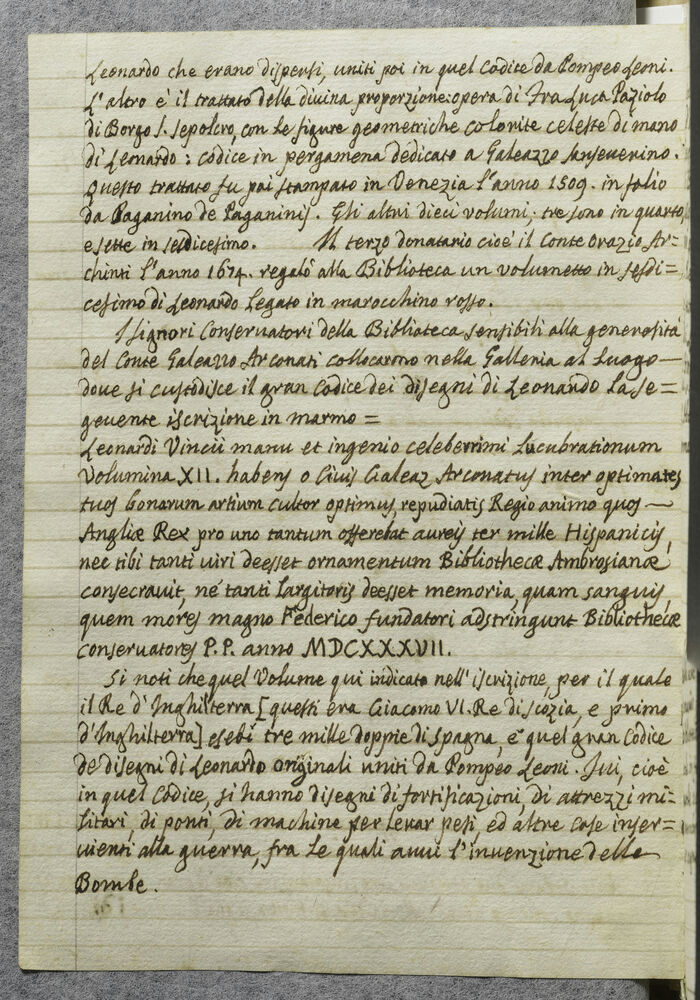 Leonardo che erano dispersi, uniti poi in quel Codice da Pompeo Leoni.
L'altro è il trattato della divina proporzione: opera di Fra Luca Paziolo
di Borgo S. Sepolcro, con le figure geometriche colorite celeste di mano
di Leonardo: codice in pergamena dedicato a Galeazzo Sanseverino.
Questo trattato fu poi stampato in Venezia l'anno 1509. in folio
da Paganino de Paganinis. Gli altri dieci volumi; tre sono in quarto,
e sette in sesdicesimo. Il terzo donatario cioè il Conte Orazio Ar=
chinti l'anno 1674. regalò alla Biblioteca un volumetto in sesdi=
cesimo di Leonardo legato in marocchino rosso.
I Signori Conservatori della Biblioteca sensibili alla generosità
del Conte Galeazzo Arconati collocarono nella Galleria al Luogo —
dove si custodisce il gran Codice dei disegni di Leonardo la se=
gevente iscrizione in marmo =
Leonardi Vincii manu et ingenio celeberrimi Lucubrationum
Volumina XII. habens o Civis Galeaz Arconatus inter optimates
tuos bonarum artium cultor optimus, repudiatis Regio animo quos —
Angliæ Rex pro uno tantum offerebat aureis ter mille Hispanicis,
nec tibi tanti viri deesset ornamentum Bibliothecæ Ambrosianæ
consecravit, ne tanti largitoris deesset memoria, quam sanguis,
quem mores magno Federico fundatori adstringunt Bibliothecæ
conservatores P. P. anno MDCXXXVII.
Si noti che quel Volume qui indicato nell'iscrizione, per il quale
il Re d'Inghilterra [questi era Giacomo VI. Re di Scozia, e primo
d'Inghilterra] esebì tre mille doppie di Spagna, e quel gran Codice
de disegni di Leonardo originali uniti da Pompeo Leoni. Ivi, cioè
in quel Codice, si hanno disegni di fortificazioni, di attrezzi mi=
litari, di ponti, di machine per levar pesi, ed altre cose inser=
vienti alla guerra, fra le quali avvi l'invenzione delle
Bombe.